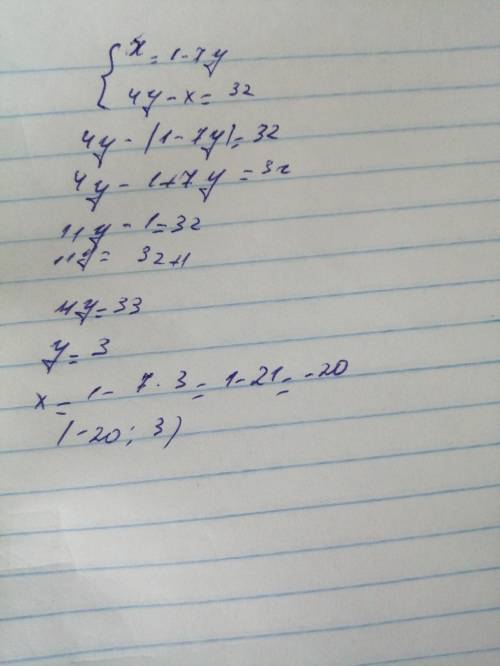 x = 1 - 7y
4y - x = 32
4y - (1 - 7y) = 32
4y - 1 + 7y = 32
11y - 1 = 32
11y = 32 + 1
11y = 33
y = 3
x = 1 - 7 · 3 = 1 - 21 = -20
(-20; 3)